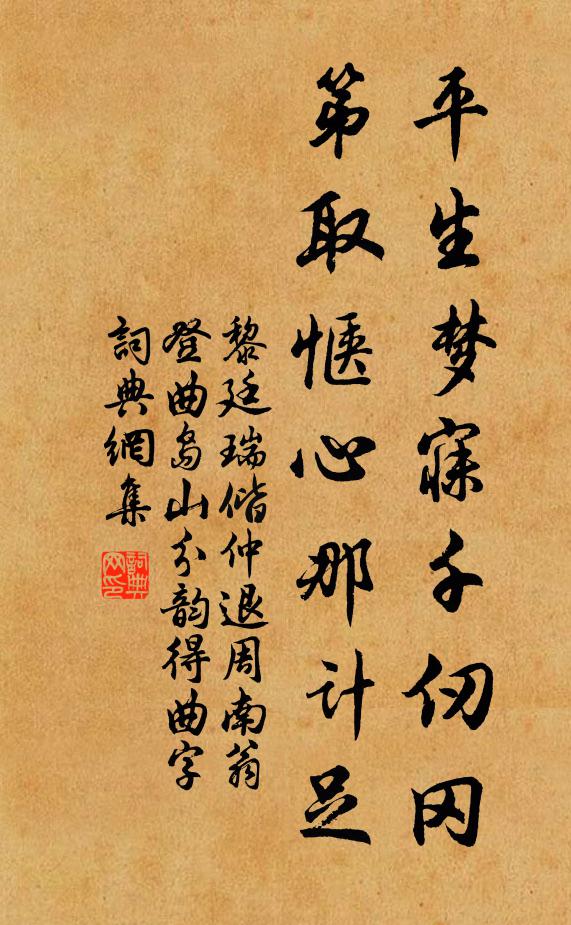 平生梦寐千仞冈
第取惬心那计足
黎廷瑞偕仲退周南翁
登曲岛山分韵得曲字
詞典網集
詞典
网印